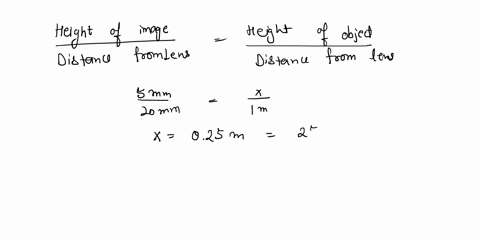 Height of image / Distance from lens = Height of object / Distance from lens
5 mm / 20 mm = x / 1 m
x = 0.25 m =